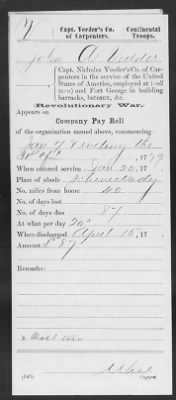 V | Capt. Veeder's Co. of Carpenters. | Continental Troops.
John A Veeder
Capt. Nicholas Veeder's Co. of Car-
penters in the service of the United
States of America, employed at
and Fort George in building
barracks, bateaux, &c.
Revolutionary War.
Appears on
Company Pay Roll
of the organization named above, commencing
1779
When entered service Jan 20, 17
Place of abode Schenectady
No. miles from home 40
No. of days lost
No. of days due 87
At what per day 20/
When discharged April 15, 17
Amount £ 87
Remarks:
(545)
Copyist.